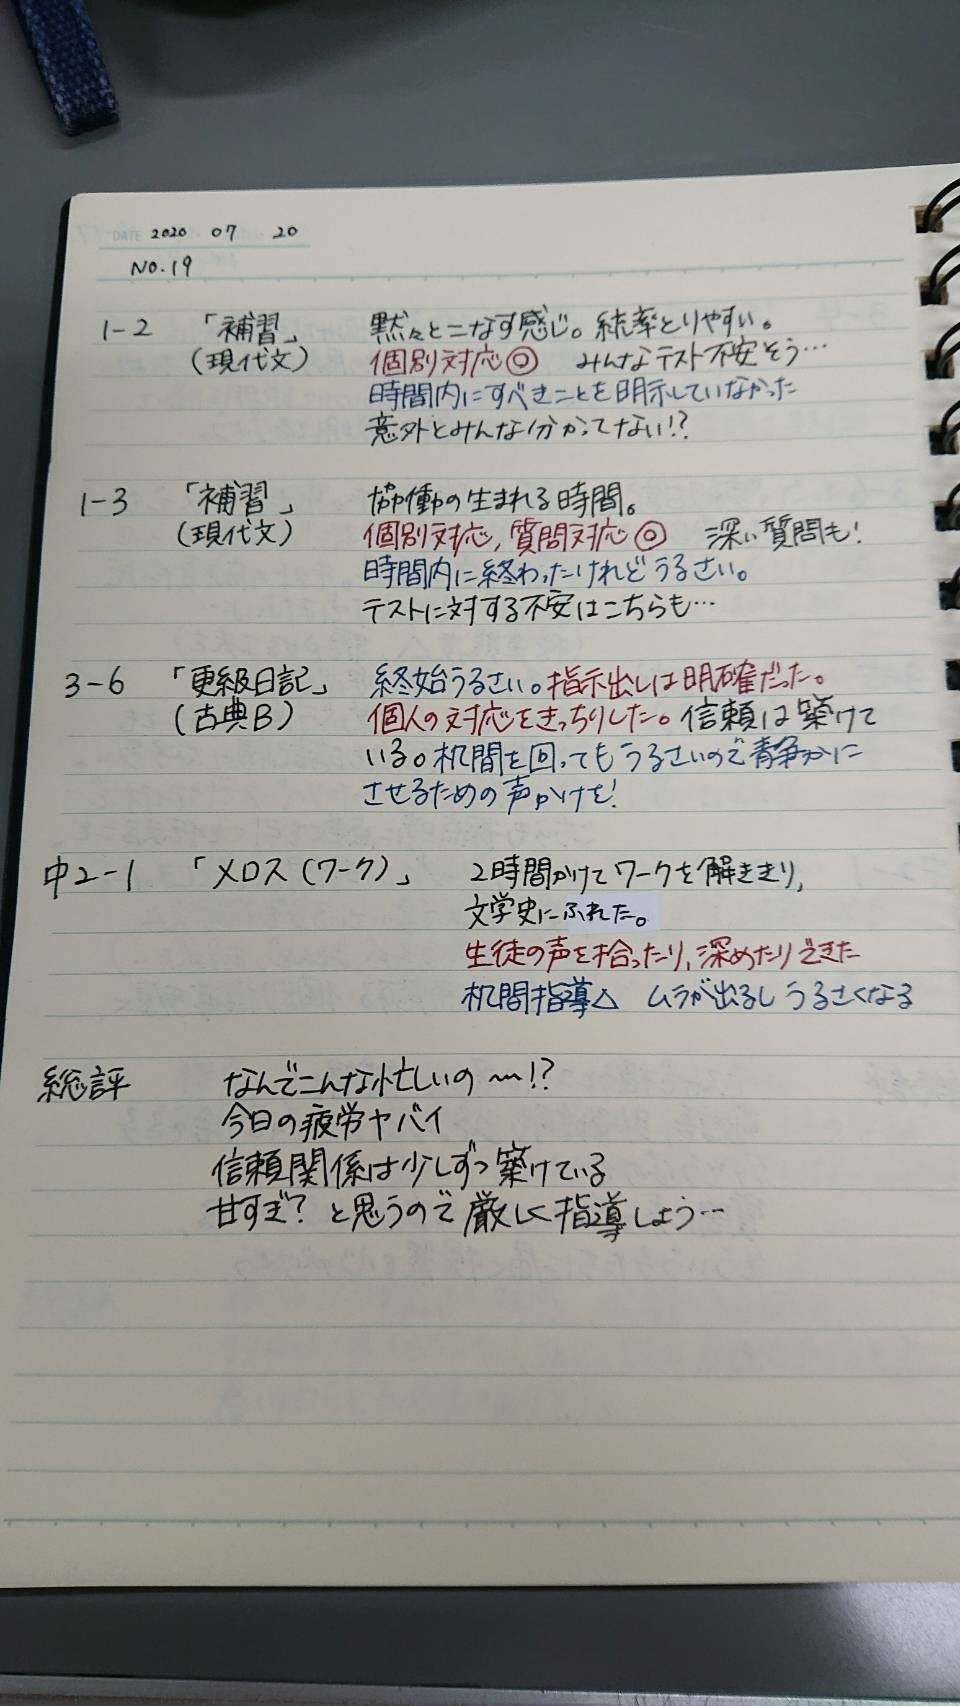 DATE 2020 07 20
NO.19
1-2 「補習」 黙々とこなす感じ。統率とりやすい。
(現代文) 個別対応◎ みんなテスト不安そう…
時間内にすべきことを明示していなかった
意外とみんな分かってない!?
1-3 「補習」 協働の生まれる時間。
(現代文) 個別対応,質問対応◎ 深い質問も!
時間内に終わったけれどうるさい。
テストに対する不安はこちらも…
3-6 「更級日記」 終始うるさい。指示出しは明確だった。
(古典B) 個人の対応をきっちりした。信頼は築けて
いる。机間を回ってもうるさいので静かに
させるための声かけを!
中2-1 「メロス(ワーク)」 2時間かけてワークを解ききり,
文学史にふれた。
生徒の声を拾ったり,深めたりできた
机間指導△ ムラが出るしうるさくなる
総評 なんでこんな忙しいの〜!?
今日の疲労ヤバイ
信頼関係は少しずつ築けている
甘すぎ?と思うので厳しく指導しよう…